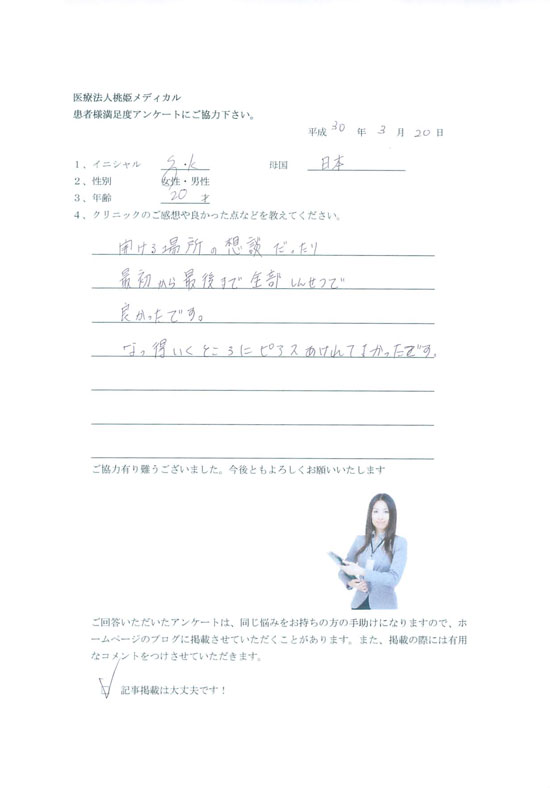 医療法人桃姫メディカル
患者様満足度アンケートにご協力下さい。
平成 30 年 3 月 20 日
1、イニシャル S・k 母国 日本
2、性別 女性・男性
3、年齢 20 才
4、クリニックのご感想や良かった点などを教えてください。
開ける場所の想談だったり
最初から最後まで全部しんせつで
良かったです。
なっ得いくところにピアスあけれてよかったです。
ご協力有り難うございました。今後ともよろしくお願いいたします
ご回答いただいたアンケートは、同じ悩みをお持ちの方の手助けになりますので、ホ
ームページのブログに掲載させていただくことがあります。また、掲載の際には有用
なコメントをつけさせていただきます。
□ 記事掲載は大丈夫です！